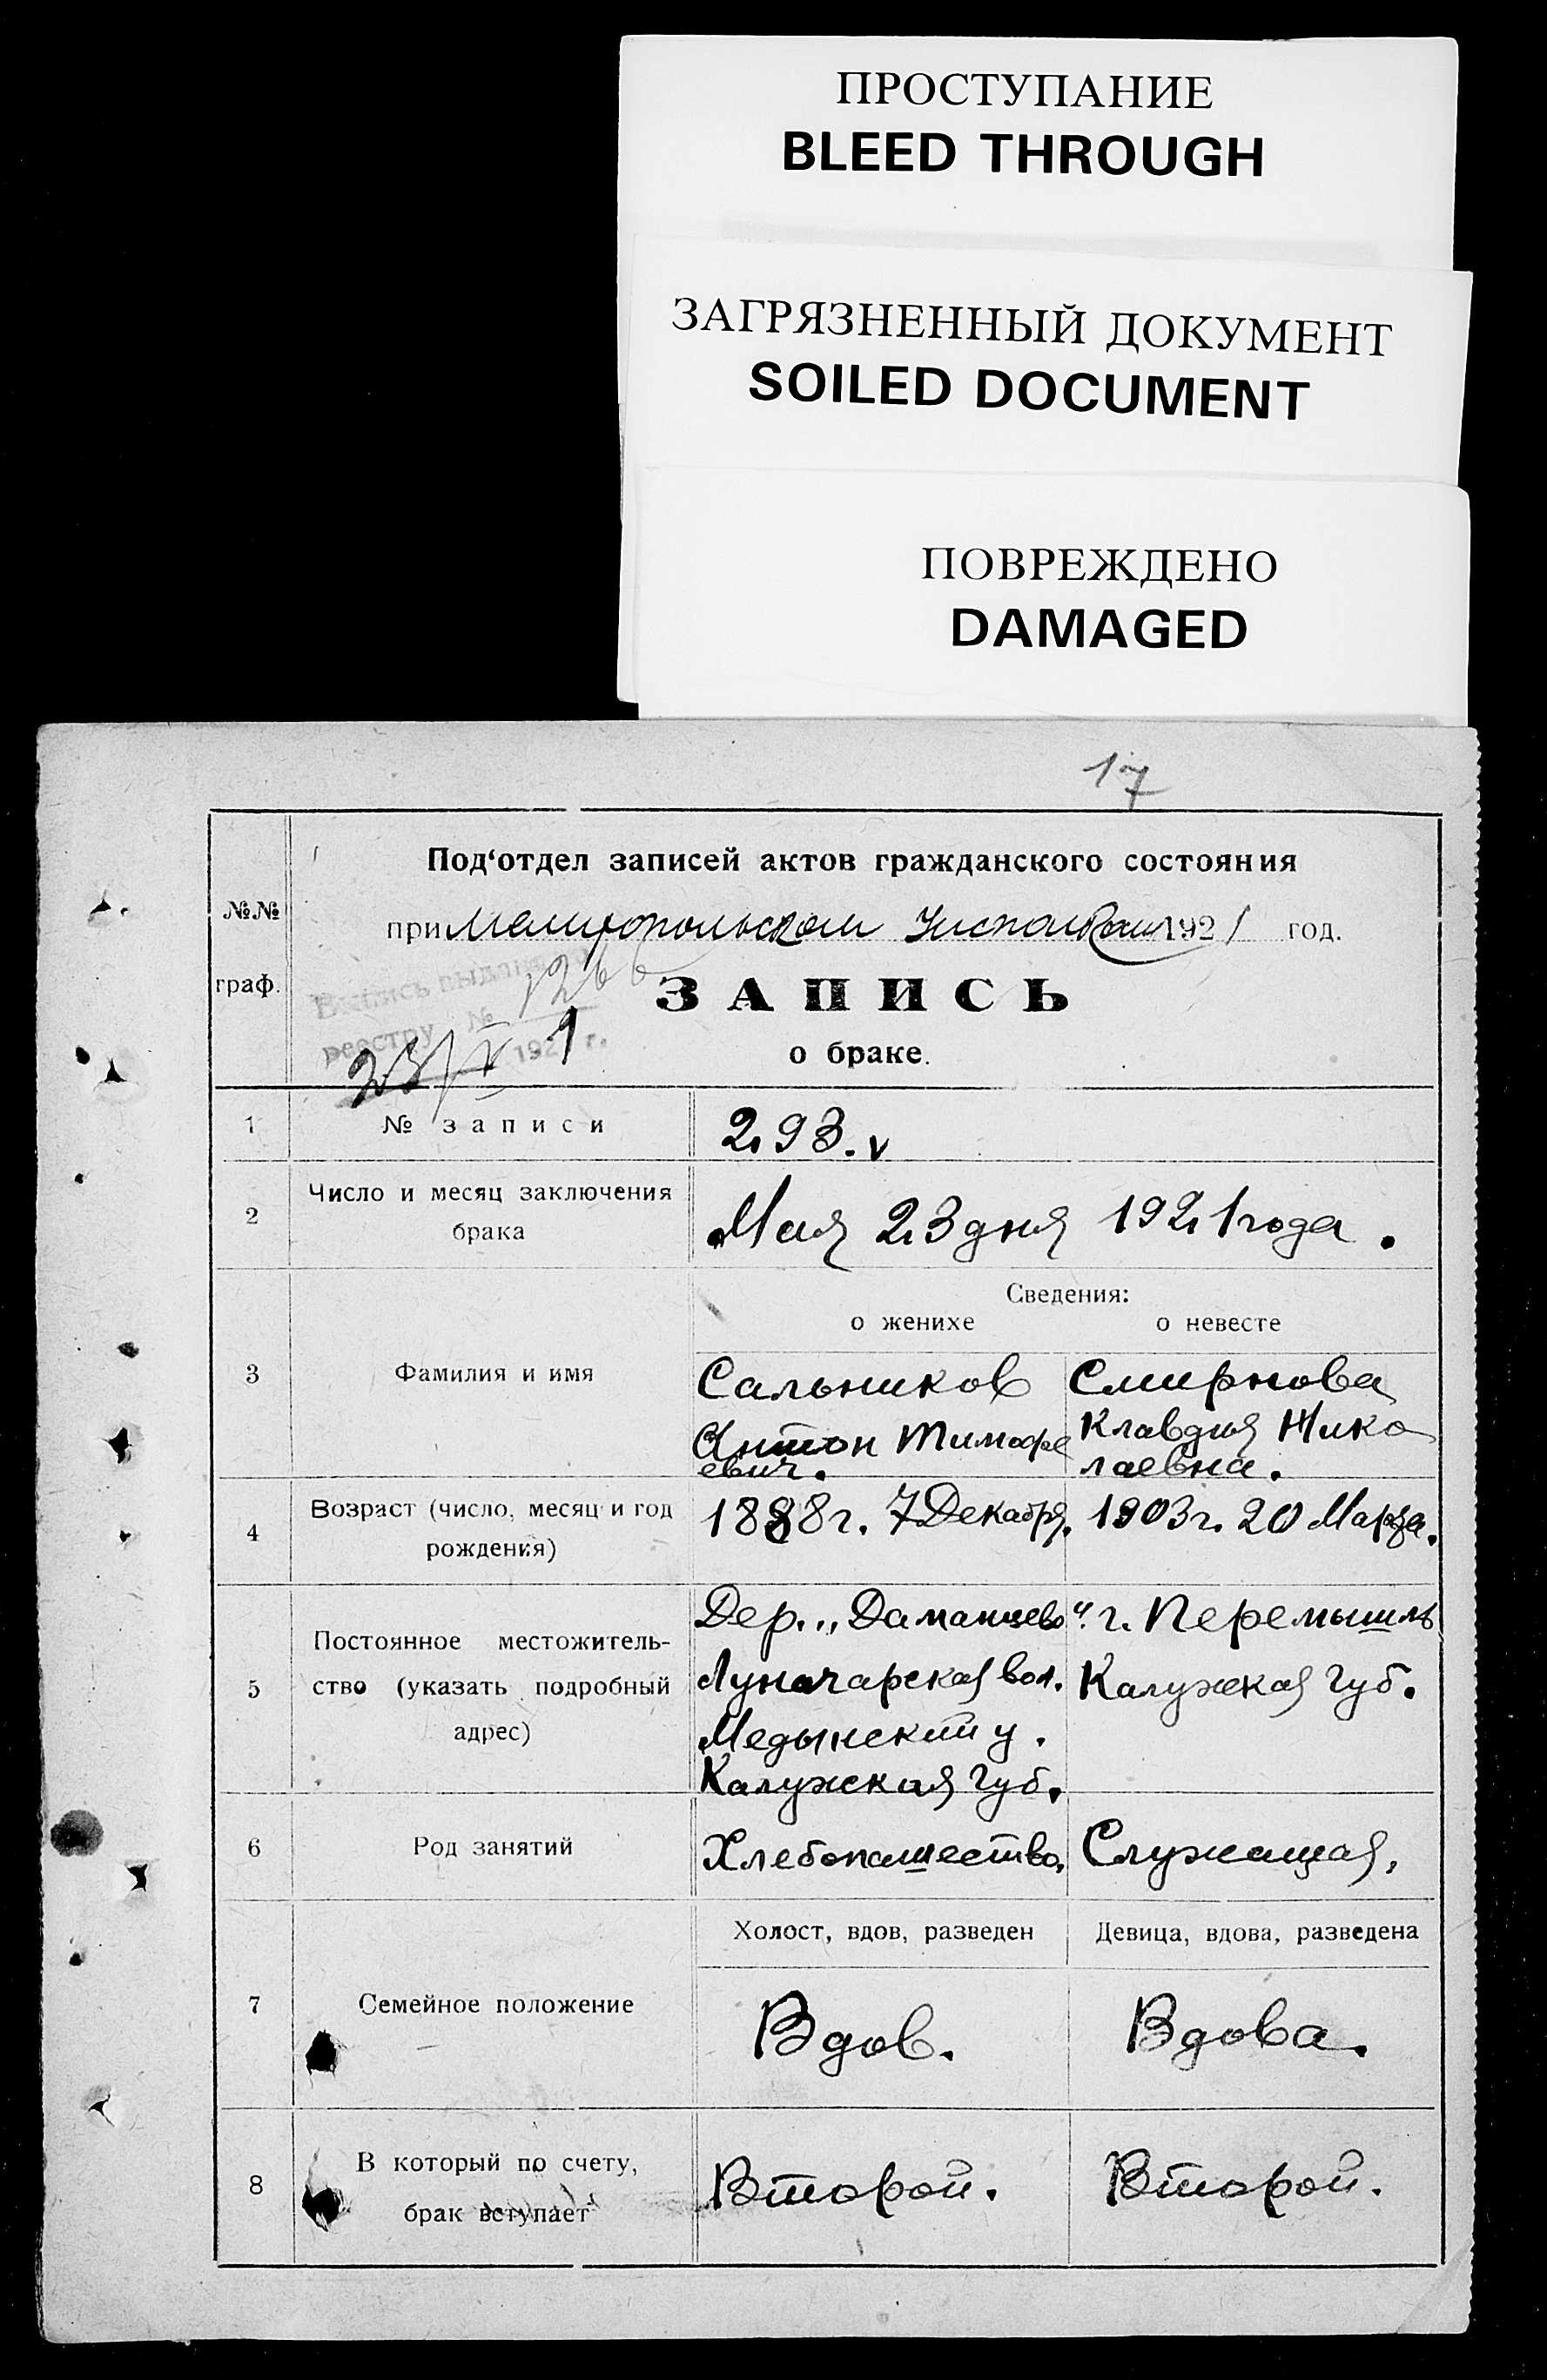 ПРОСТУПАНИЕ
BLEED THROUGH
ЗАГРЯЗНЕННЫЙ ДОКУМЕНТ
SOILED DOCUMENT
ПОВРЕЖДЕНО
DAMAGED
17
Под‘отдел записей актов гражданского состояния
№№
при Мелитопольском Исполкоме 1921 год.
граф.
ЗАПИСЬ
реестру № 1921 г.
23/V
о браке.
1 № записи 293. v
2 Число и месяц заключения
брака
Мая 23 дня 1921 года.
Сведения:
о женихе о невесте
3 Фамилия и имя
Сальников Смирнова
Антон Тимофе Клавдия Нико
евич. лаевна.
4 Возраст (число, месяц и год
рождения)
1888 г. 7 Декабря. 1903 г. 20 Марта.
5 Постоянное местожитель-
ство (указать подробный
адрес)
Дер. „Даманцево“ г. Перемышль
Луначарская вол. Калужская Губ.
Медынский у.
Калужская Губ.
6 Род занятий Хлебопашество, Служащая,
Холост, вдов, разведен Девица, вдова, разведена
7 Семейное положение
Вдов. Вдова.
8 В который по счету,
брак вступает
Второй. Второй.